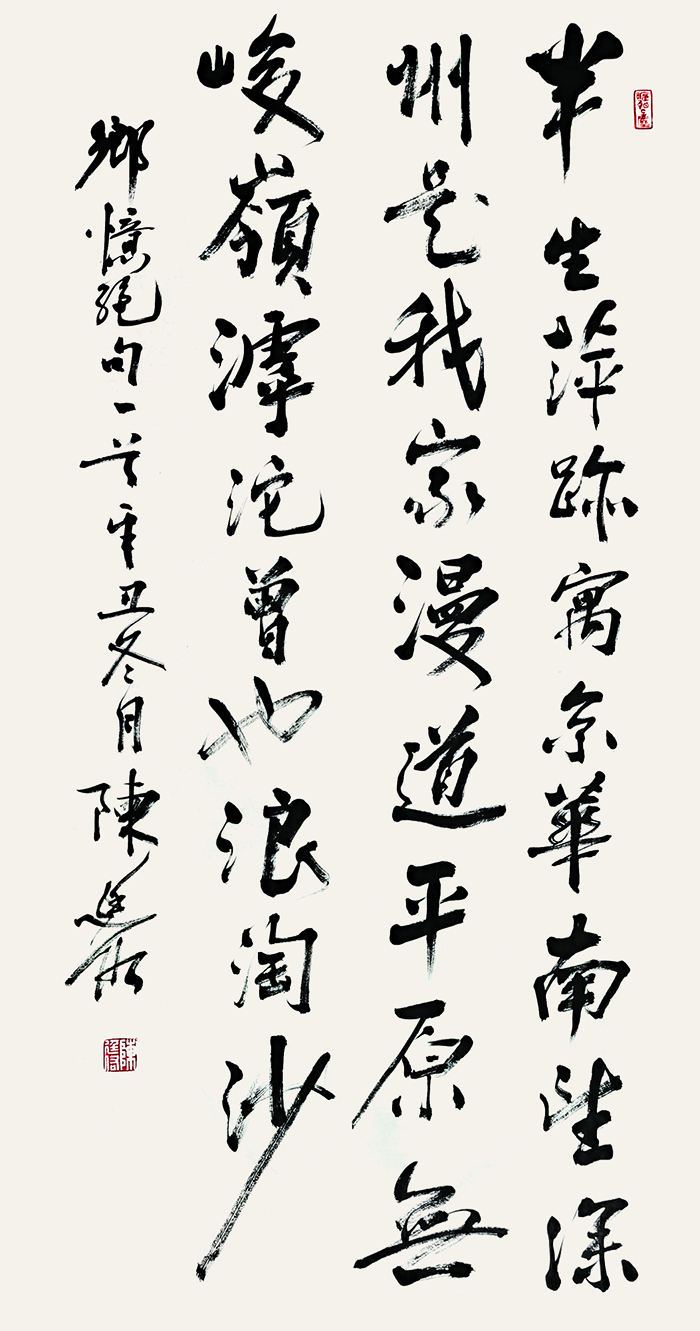 半生萍跡寓京華南望深
州是我家漫道平原無
峻嶺滹沱曾也浪淘沙
鄉憶絕句一首辛丑冬月陳